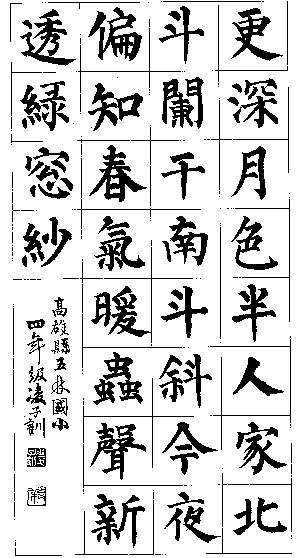 更深月色半人家北
斗闌干南斗斜今夜
偏知春氣暖蟲聲新
透綠窓紗
高雄縣五林國小
四年級凌子